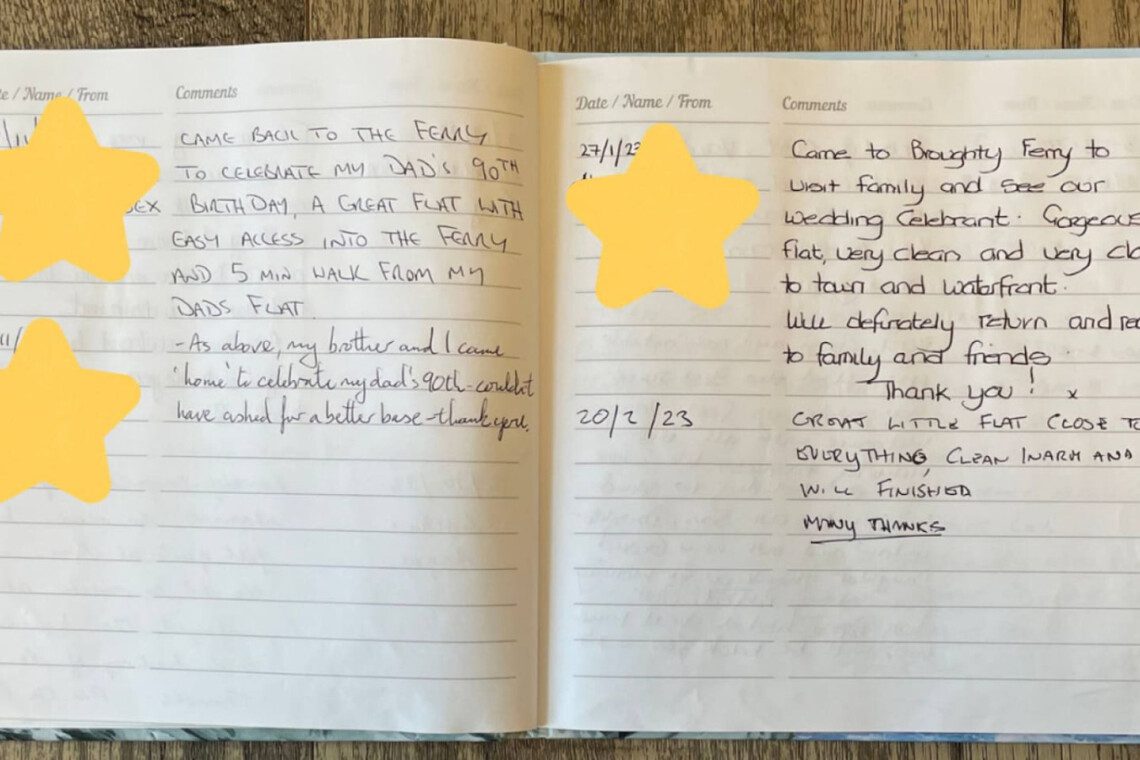 Name / From
Comments
CAME BACK TO THE FERRY
TO CELEBRATE MY DAD'S 90TH
BIRTHDAY, A GREAT FLAT WITH
EASY ACCESS INTO THE FERRY
AND 5 MIN WALK FROM MY
DADS FLAT.
-As above, my brother and I came
'home' to celebrate my dad's 90th-couldn't
have asked for a better base-thank you.
Date / Name / From
Comments
27/1/23
Came to Broughty Ferry to
visit family and see our
wedding Celebrant. Gorgeous
flat, very clean and very clo
to town and waterfront.
Will definately return and rec
to family and friends.
Thank you! x
20/2/23
GREAT LITTLE FLAT CLOSE TO
EVERYTHING, CLEAN WARM AND
WILL FINISHED
MANY THANKS